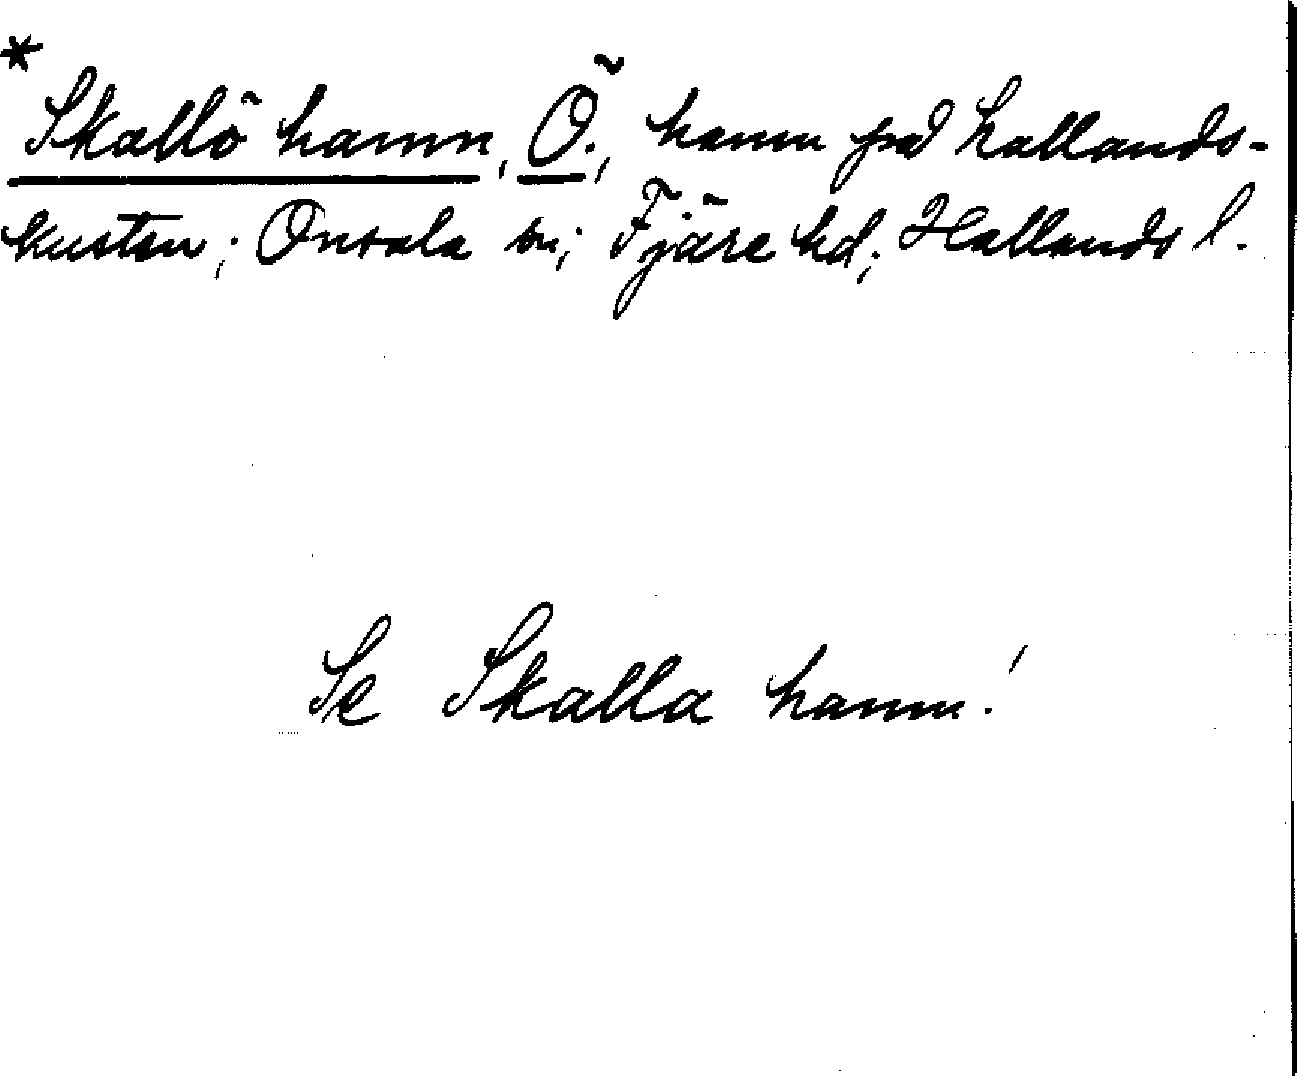 * Skallö hamn, Ö., hamn på hallands-
kusten; Onsala sn; Fjäre hd; Hallands l.
Se Skalla hamn!